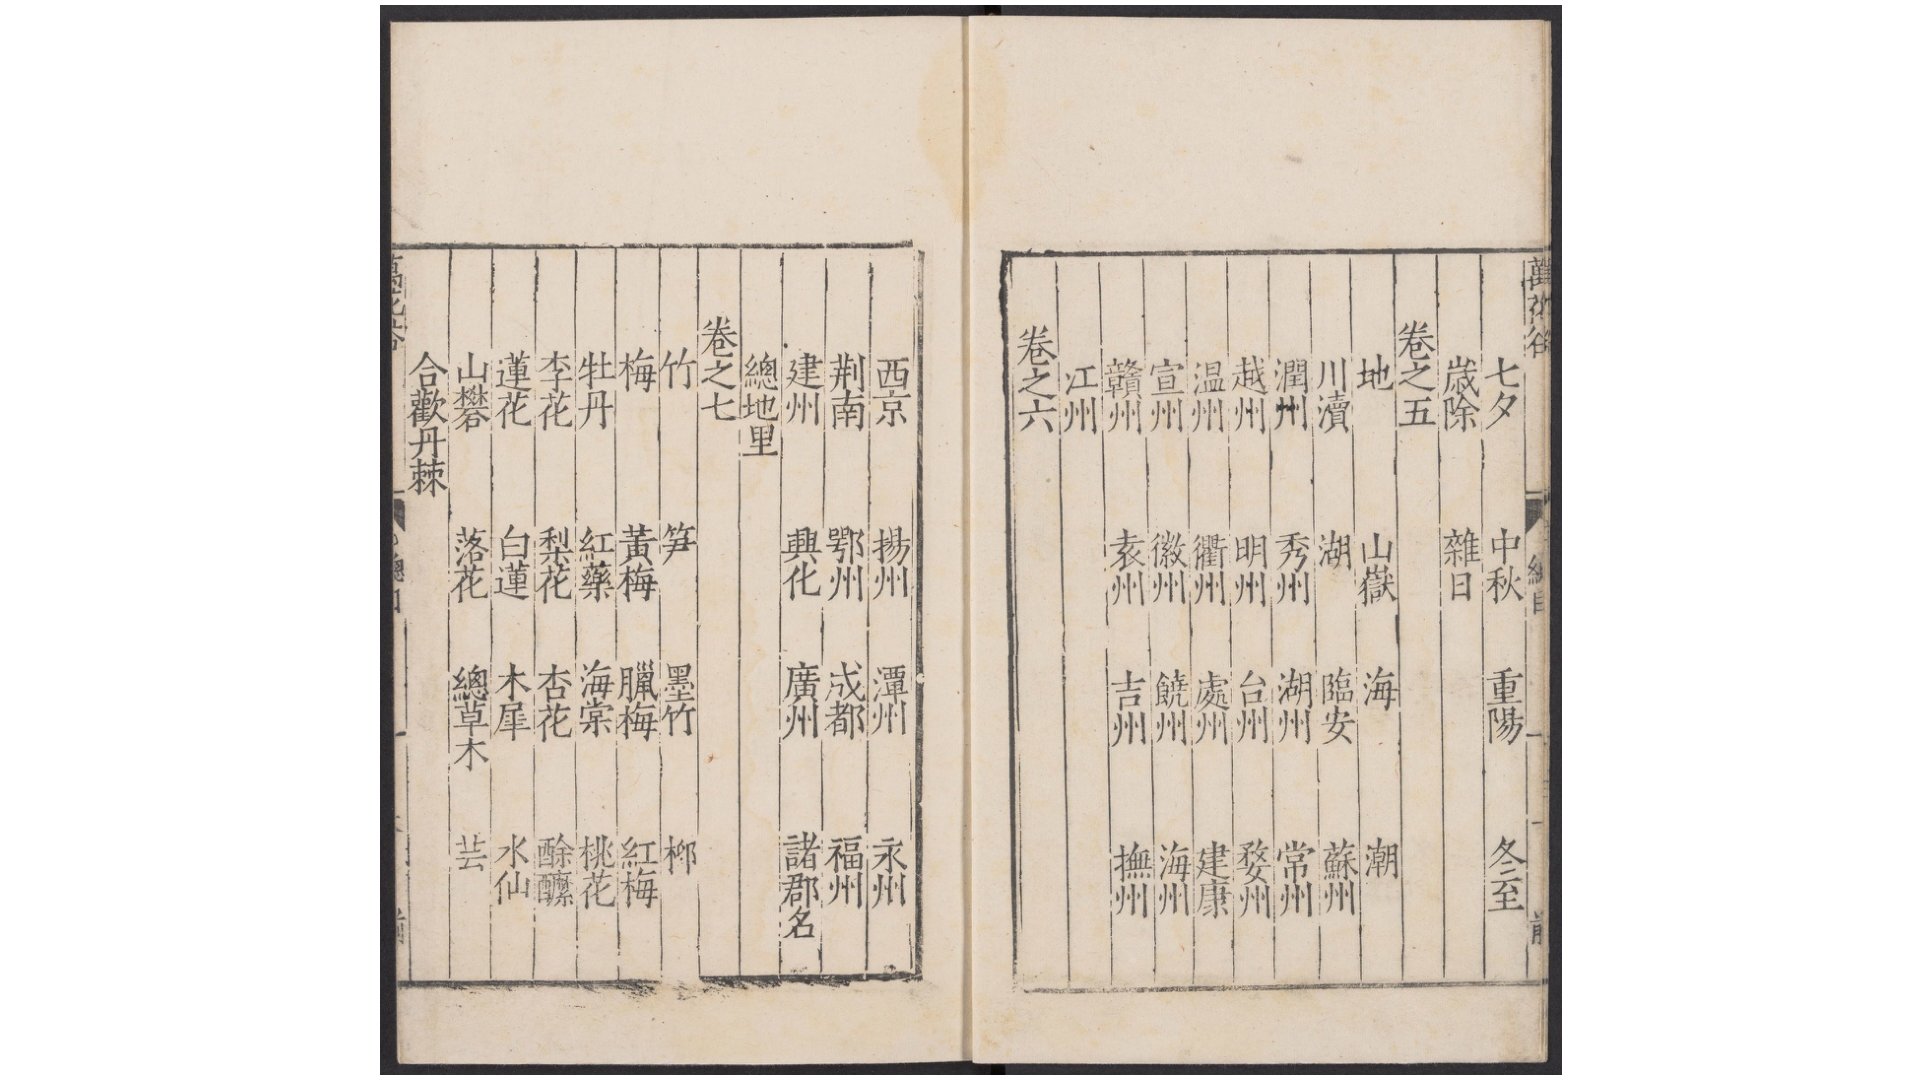 七夕 中秋 重陽 冬至
歳除 雜日
卷之五
地 山嶽 海 潮
川瀆 湖 臨安 蘇州
潤州 秀州 湖州 常州
越州 明州 台州 婺州
温州 衢州 處州 建康
宣州 徽州 饒州 海州
贛州 袁州 吉州 撫州
江州
卷之六
西京 揚州 潭州 永州
荆南 鄂州 成都 福州
建州 興化 廣州 諸郡名
總地里
卷之七
竹 笋 墨竹 柳
梅 黃梅 臘梅 紅梅
牡丹 紅藥 海棠 桃花
李花 梨花 杏花 酴醿
蓮花 白蓮 木犀 水仙
山礬 落花 總草木 芸
合歡丹棘